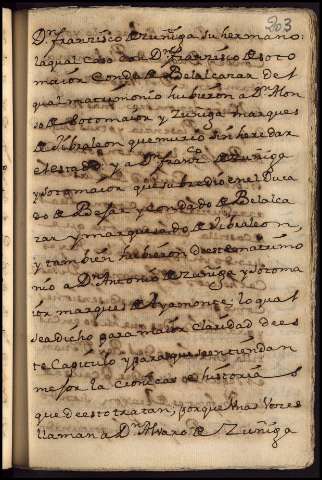 203
Dn francisco de zuñiga su hermano:
la qual caso con Dn francisco de soto
maior Conde de Belalcazar del
qual matrimonio hubieron a Dn Alon
so de sotomaior y Zuñiga marques
de Gibraleon que murio sin heredar
el estado, y a Dn franco de Zuñiga
y sotomaior que subcedio en el Duca
do de Bejar y condado de Belalca
zar y marquesado de Gibraleon,
y tambien hubieron de este matrimo
nio a Dn Antonio de zuñiga y sotoma
ior marques de Ayamonte; lo qual
sea dicho para maior claridad de es
te Capitulo y para que se entiendan
mejor las Cronicas e historias
que de esto tratan, porque unas vozes
llaman a Dn Alvaro de Zuñiga